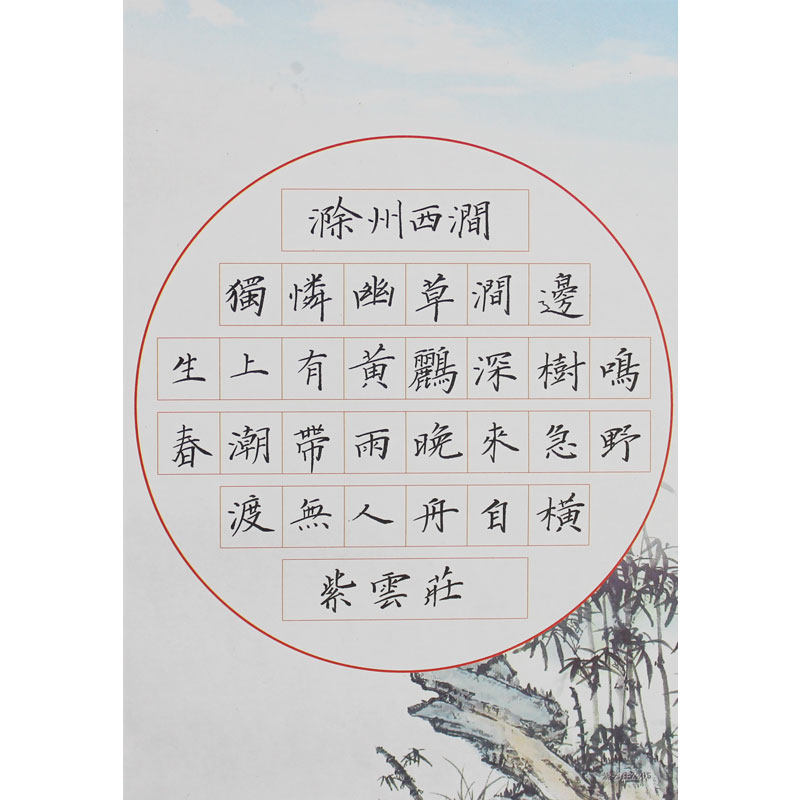 滁州西澗
獨憐幽草澗邊
生上有黃鸝深樹鳴
春潮帶雨晚來急野
渡無人舟自橫
紫雲莊